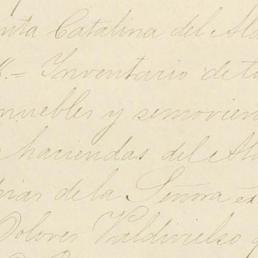 nta Catalina del Ala
Inventario de to
muebles y semovien
haciendas del Al
rias de la Señora es
Dolores Valdivielso q